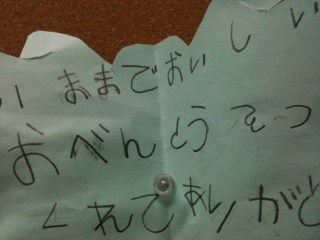 い ままでおいしい
おべんとうをつ
くれてありがと